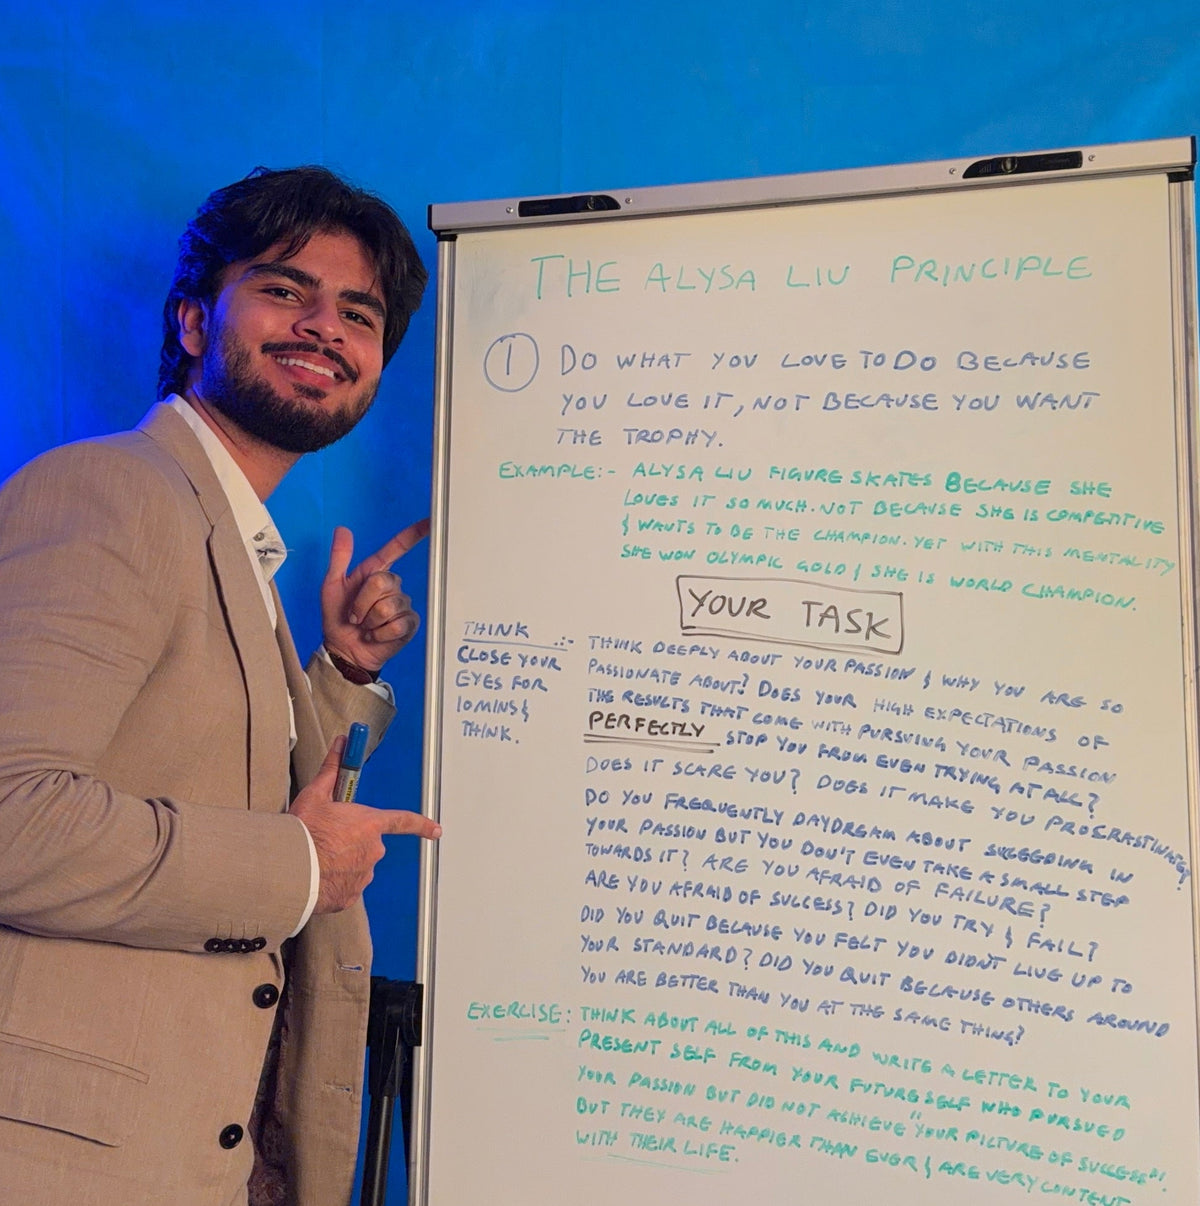 THE ALYSA LIU PRINCIPLE
1 DO WHAT YOU LOVE TO DO BECAUSE
YOU LOVE IT, NOT BECAUSE YOU WANT
THE TROPHY.
EXAMPLE:- ALYSA LIU FIGURE SKATES BECAUSE SHE
LOVES IT SO MUCH. NOT BECAUSE SHE IS COMPETITIVE
& WANTS TO BE THE CHAMPION. YET WITH THIS MENTALITY
SHE WON OLYMPIC GOLD & SHE IS WORLD CHAMPION.
YOUR TASK
THINK :-
CLOSE YOUR
EYES FOR
10 MINS &
THINK.
THINK DEEPLY ABOUT YOUR PASSION & WHY YOU ARE SO
PASSIONATE ABOUT? DOES YOUR HIGH EXPECTATIONS OF
THE RESULTS THAT COME WITH PURSUING YOUR PASSION
PERFECTLY STOP YOU FROM EVEN TRYING AT ALL?
DOES IT SCARE YOU? DOES IT MAKE YOU PROCRASTINATE?
DO YOU FREQUENTLY DAYDREAM ABOUT SUCCEEDING IN
YOUR PASSION BUT YOU DON'T EVEN TAKE A SMALL STEP
TOWARDS IT? ARE YOU AFRAID OF FAILURE?
ARE YOU AFRAID OF SUCCESS? DID YOU TRY & FAIL?
DID YOU QUIT BECAUSE YOU FELT YOU DIDN'T LIVE UP TO
YOUR STANDARD? DID YOU QUIT BECAUSE OTHERS AROUND
YOU ARE BETTER THAN YOU AT THE SAME THING?
EXERCISE: THINK ABOUT ALL OF THIS AND WRITE A LETTER TO YOUR
PRESENT SELF FROM YOUR FUTURE SELF WHO PURSUED
YOUR PASSION BUT DID NOT ACHIEVE "YOUR PICTURE OF SUCCESS".
BUT THEY ARE HAPPIER THAN EVER & ARE VERY CONTENT
WITH THEIR LIFE.